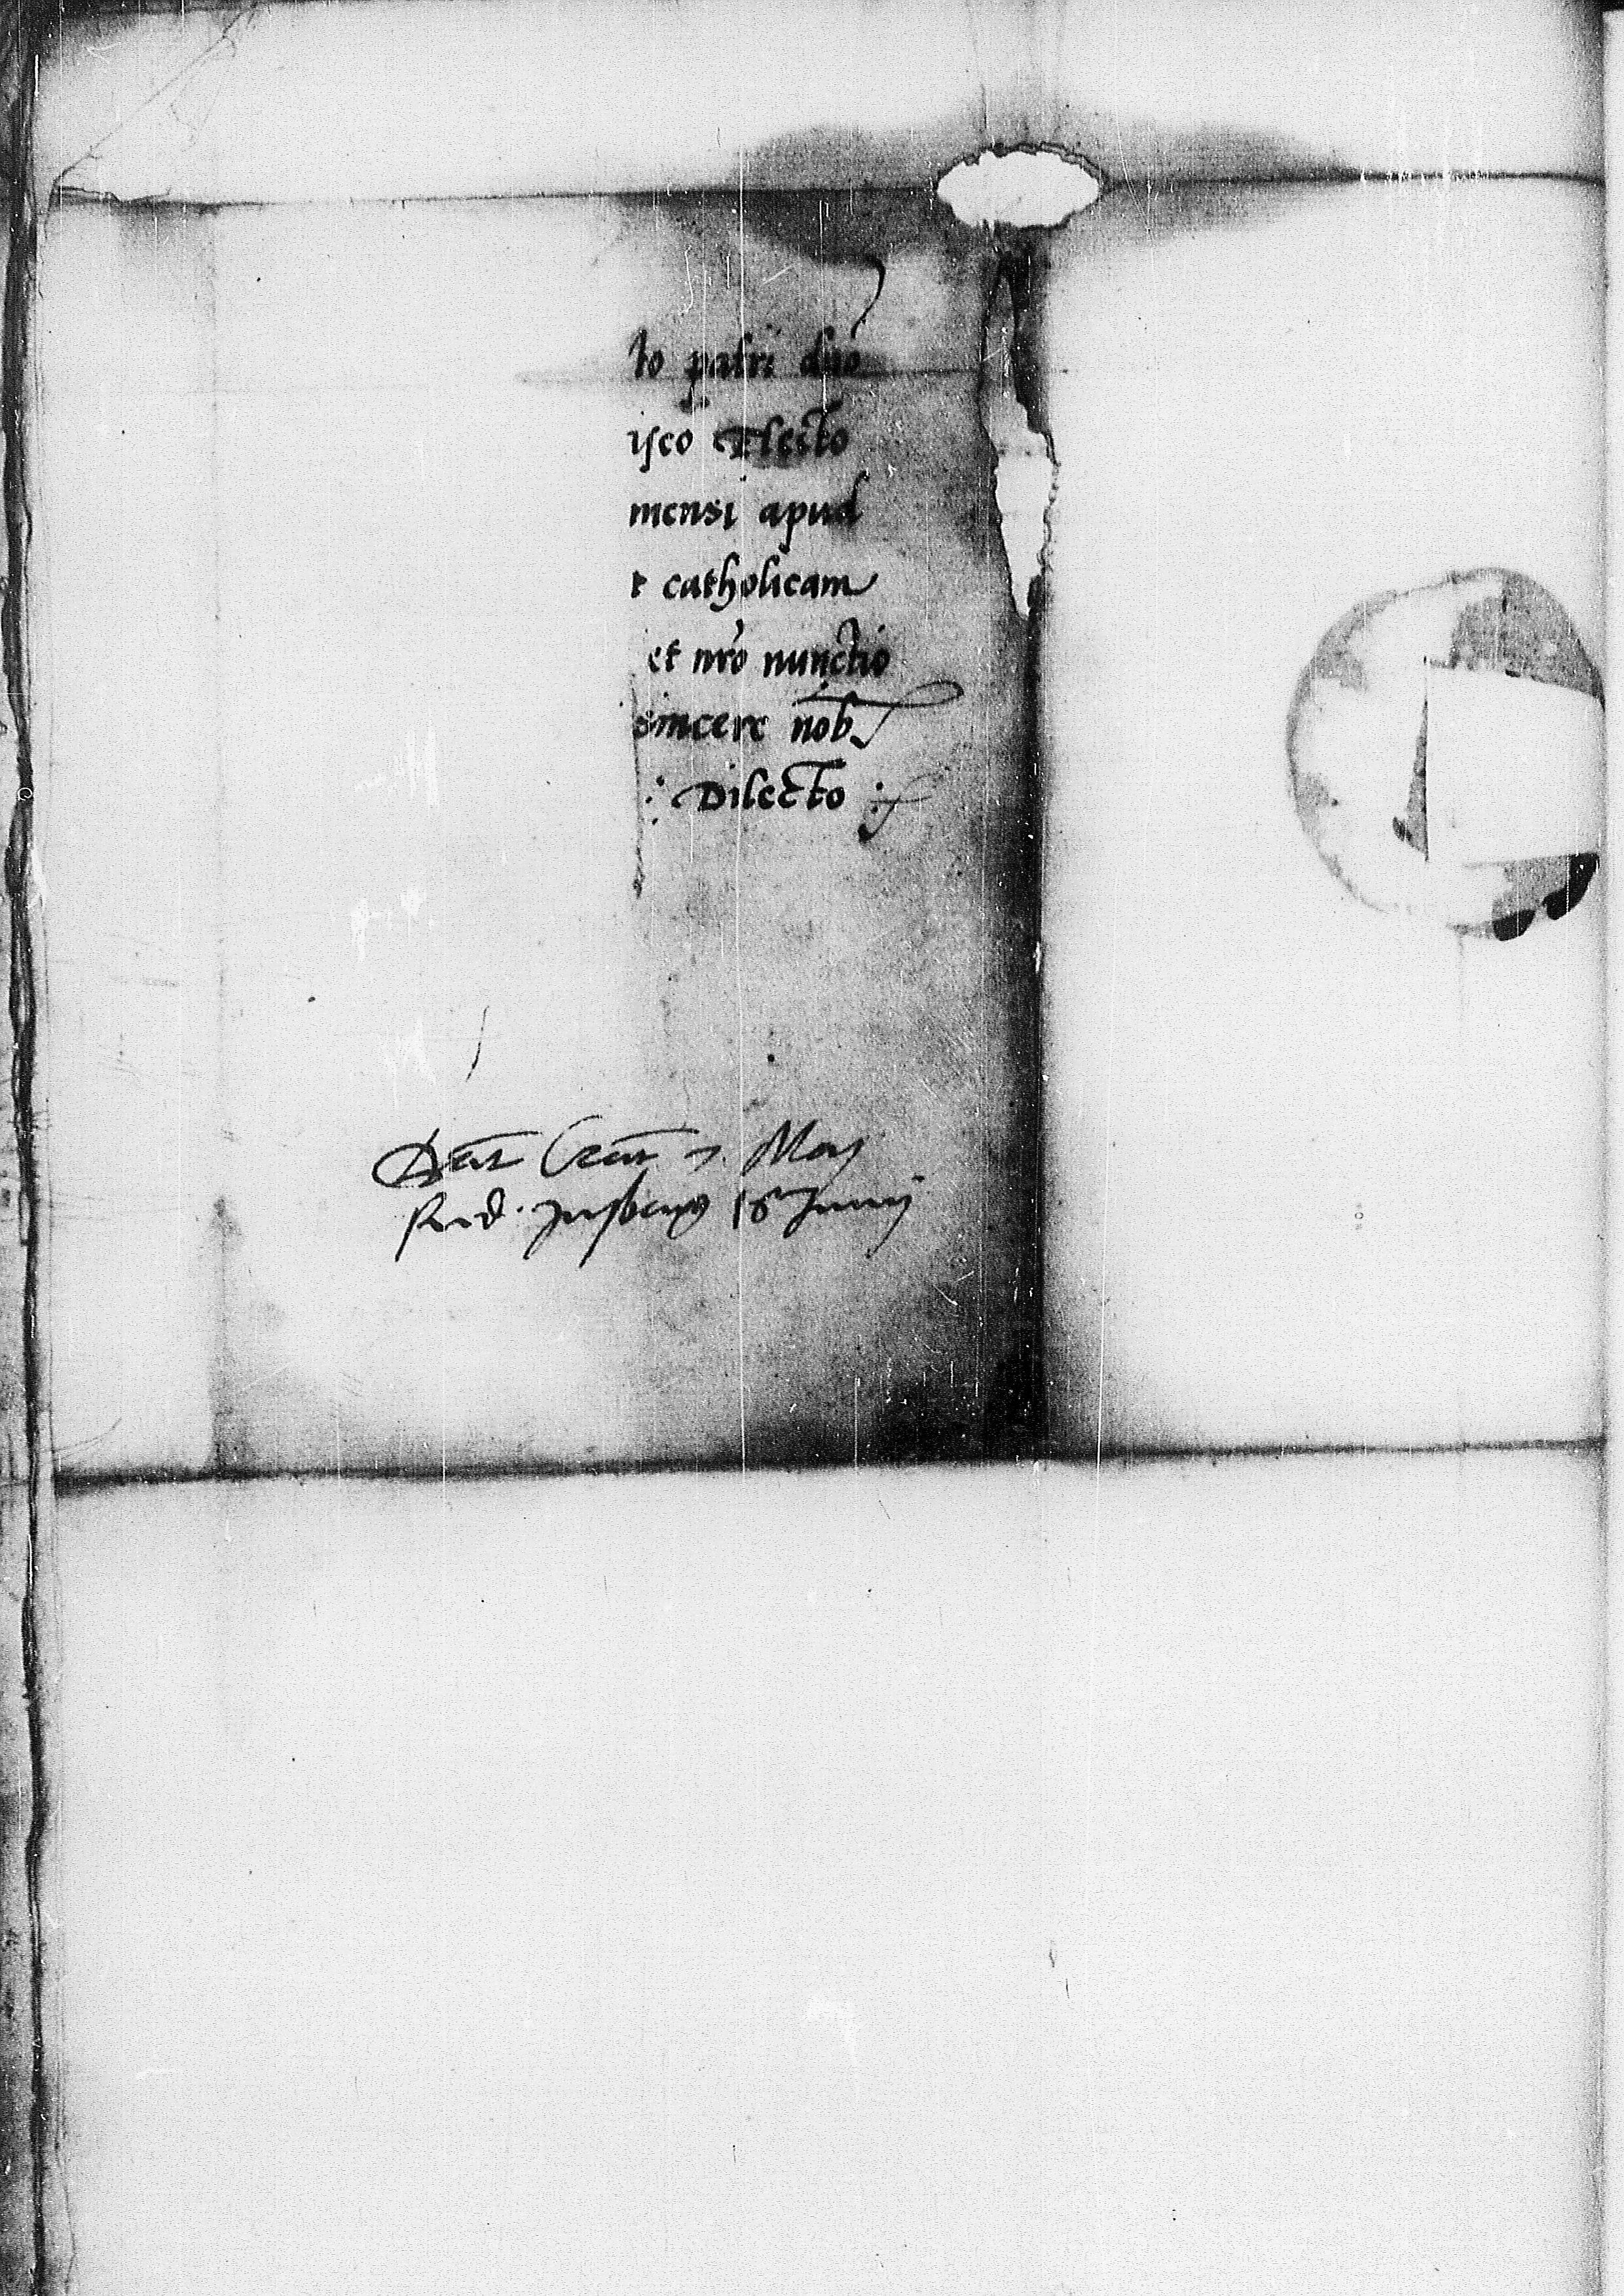 to patri dno
isco Electo
mensi apud
t catholicam
et nro nunctio
sincere nob
: Dilecto :
Dat Crac 7 Maij
Red. Insbrug 18 Junij